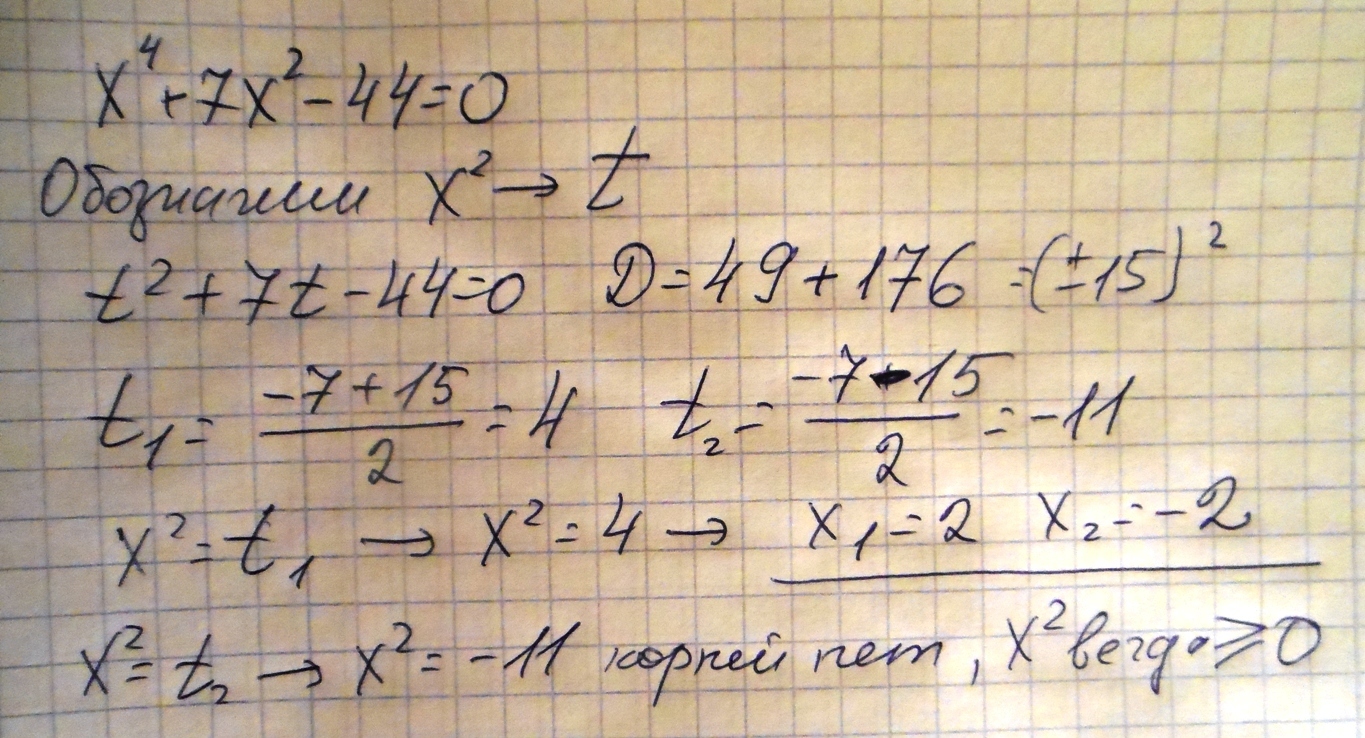 x⁴+7x²-44=0
Обозначим x² → t
t²+7t-44=0 D=49+176=(±15)²
t₁= (-7+15)/2 =4 t₂= (-7-15)/2 =-11
x²=t₁ → x²=4 → x₁=2 x₂=-2
x²=t₂ → x²=-11 корней нет, x² всегда ⩾0